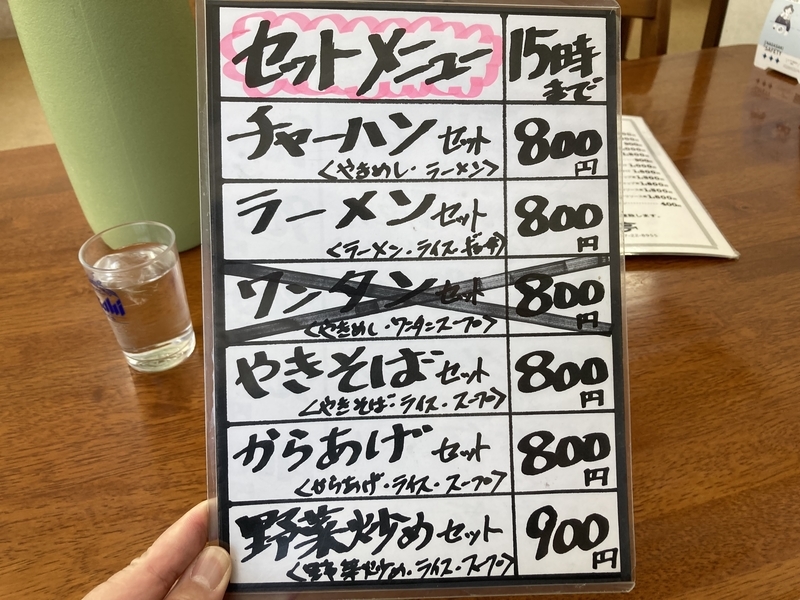 セットメニュー
15時まで
チャーハンセット
800円
<やきめし・ラーメン>
ラーメンセット
800円
<ラーメン・ライス・ギョーザ>
ワンタンセット
800円
<やきめし・ワンタンスープ>
やきそばセット
800円
<やきそば・ライス・スープ>
からあげセット
800円
<からあげ・ライス・スープ>
野菜炒めセット
900円
<野菜炒め・ライス・スープ>